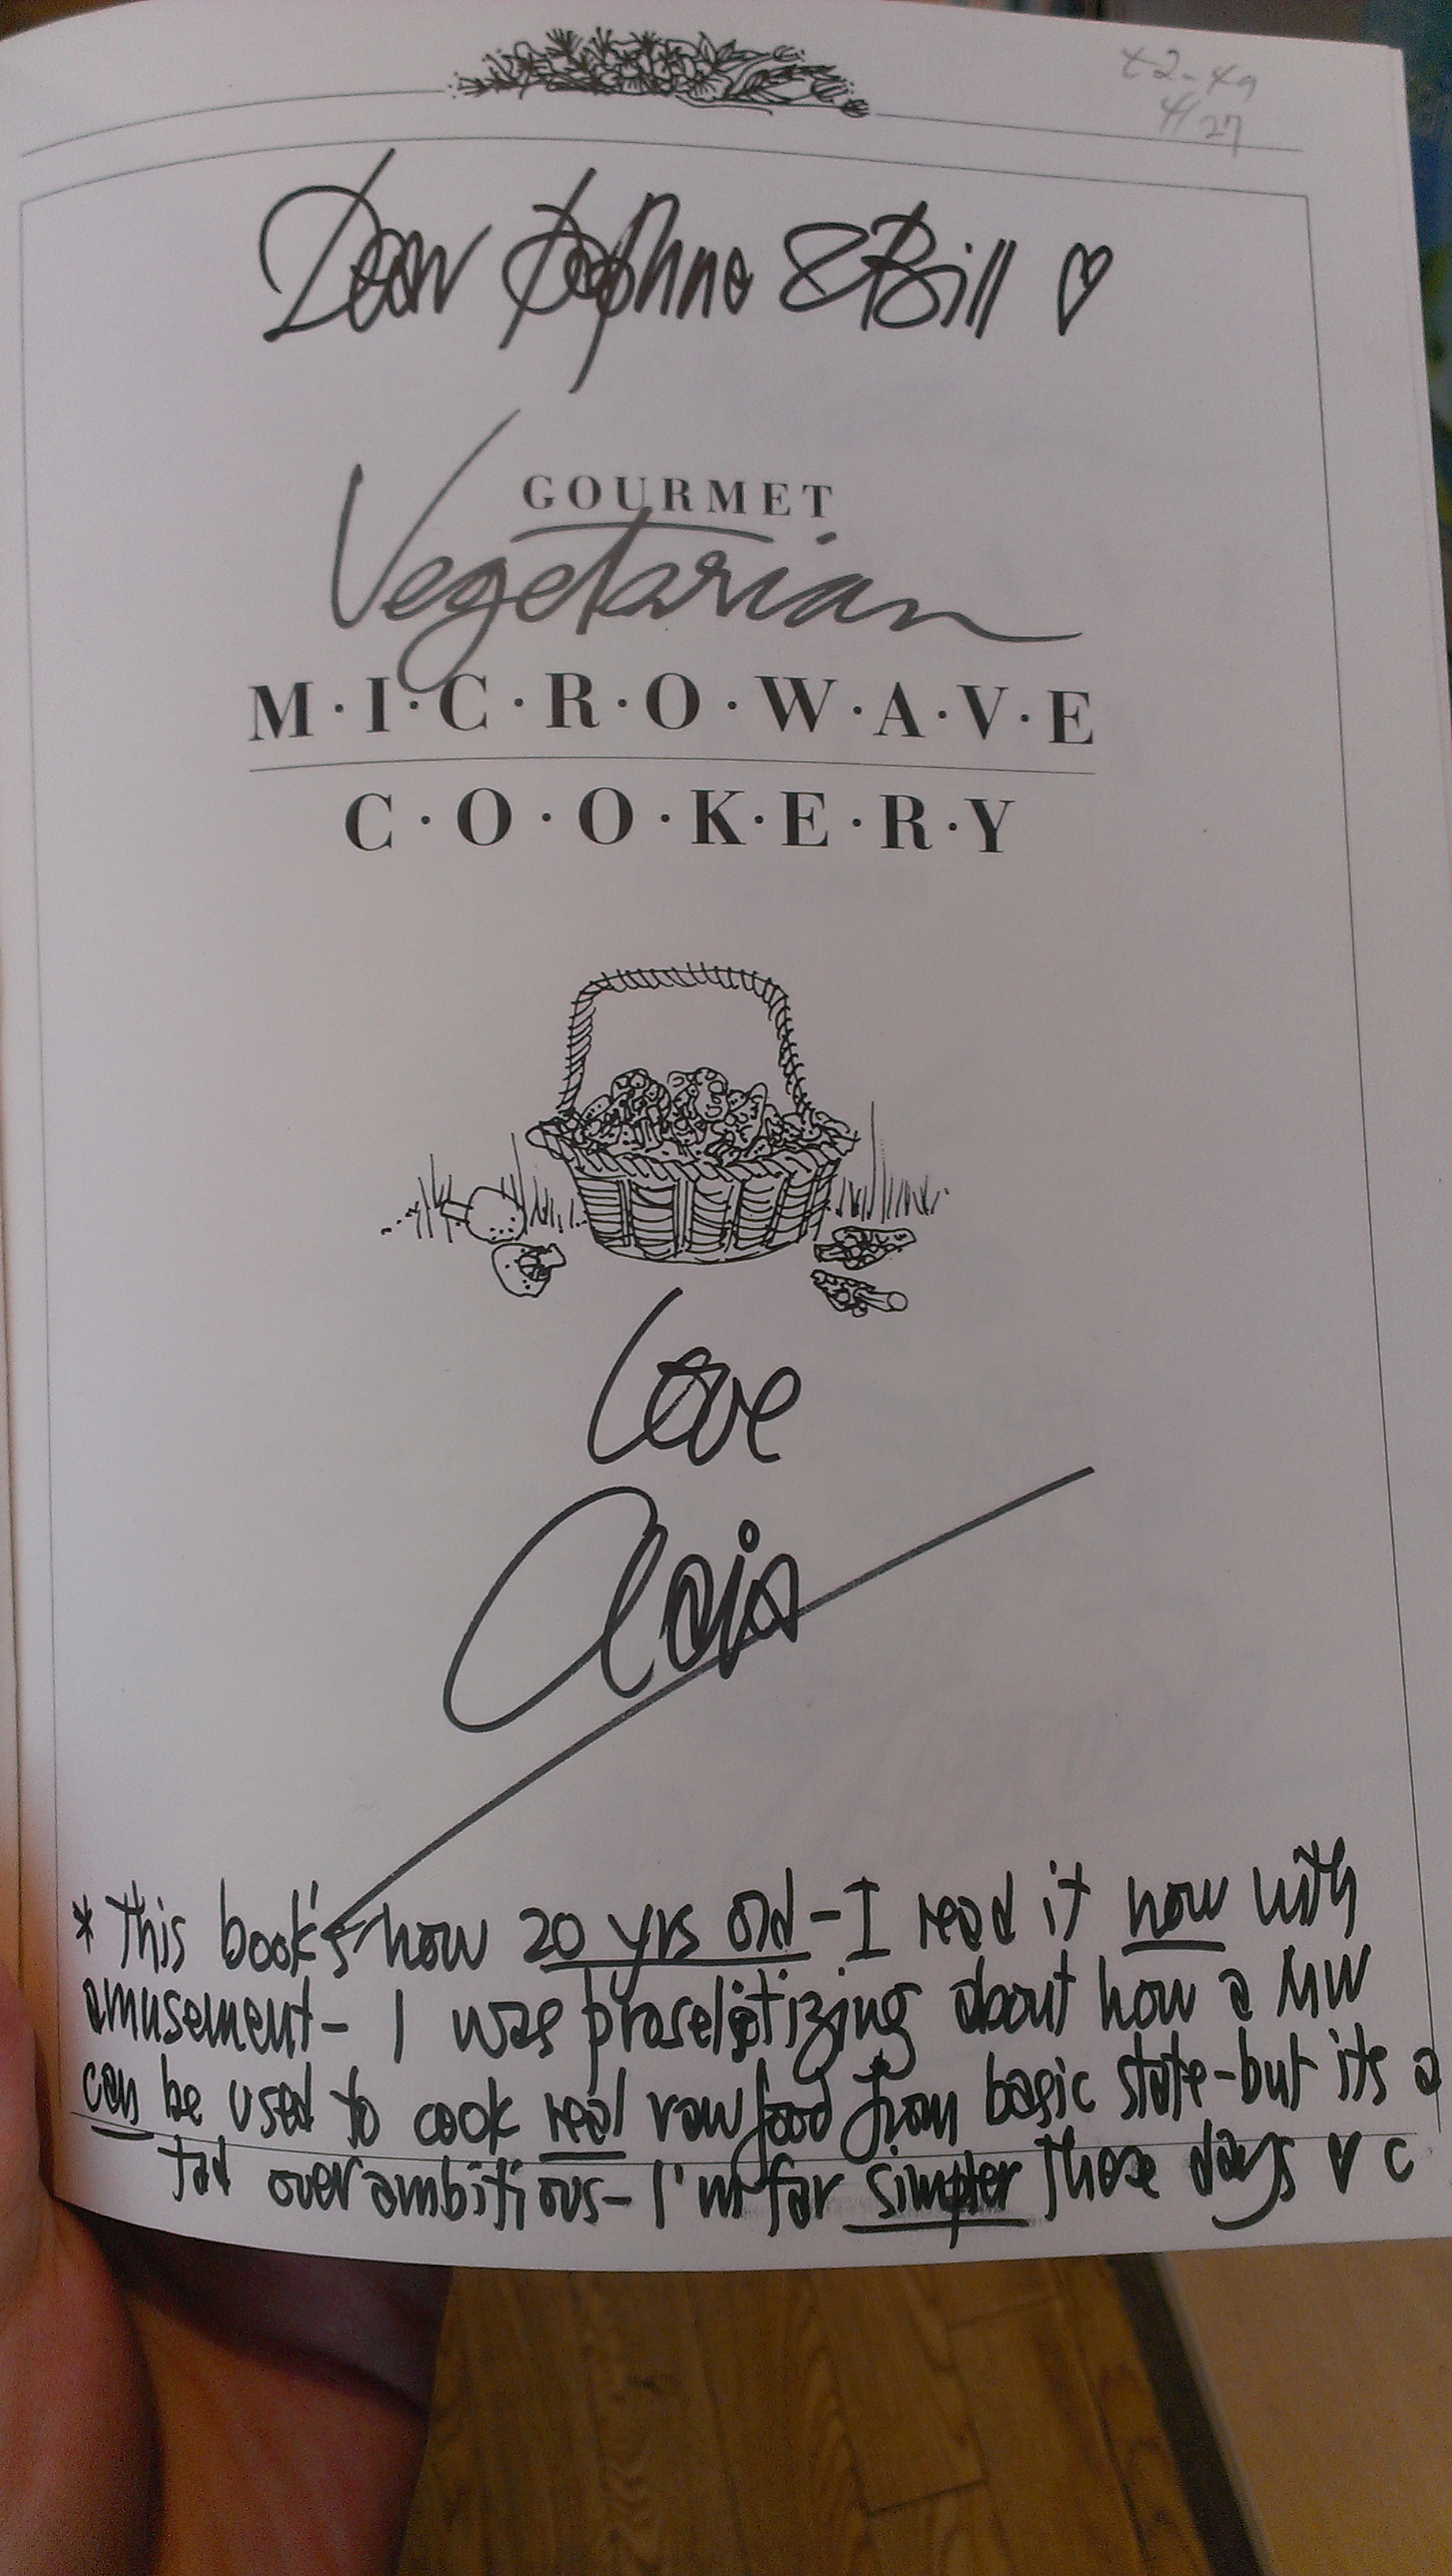 4/27
Dear Daphne & Bill ♡
GOURMET
Vegetarian
M·I·C·R·O·W·A·V·E
C·O·O·K·E·R·Y
Love
* This book's now 20 yrs old – I read it now with
amusement – I was proselytizing about how a MW
can be used to cook real raw food from basic state – but its a
tad overambitious – I'm far simpler these days ♥ C